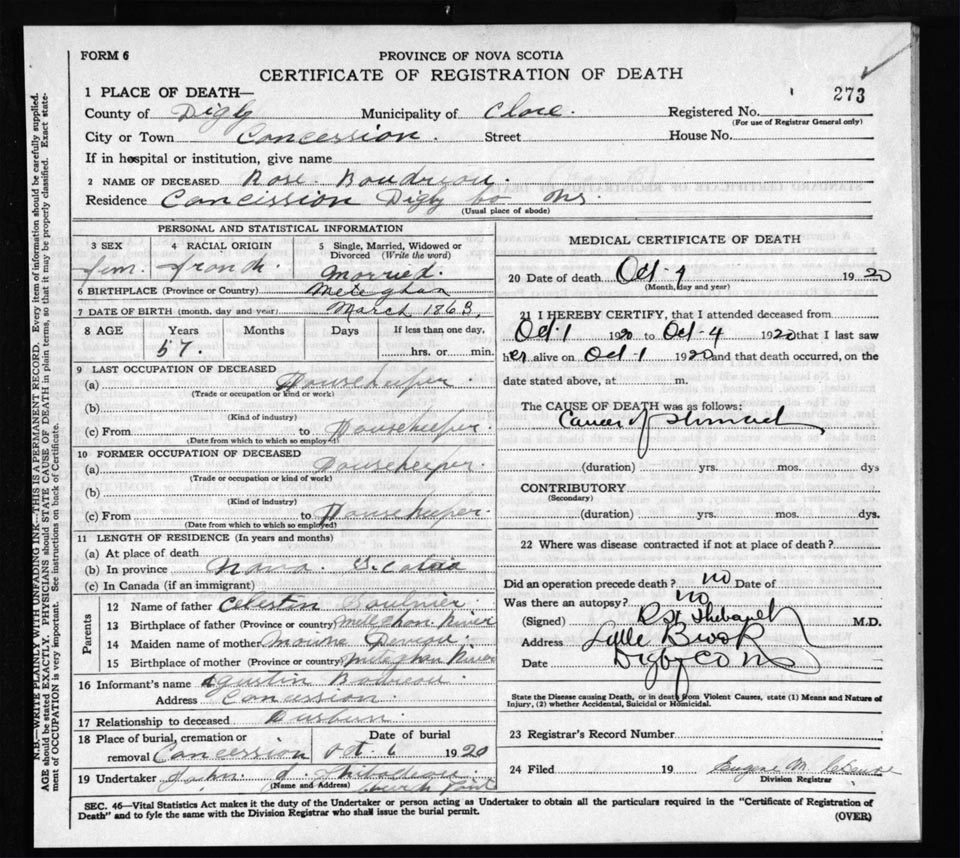 FORM 6
PROVINCE OF NOVA SCOTIA
CERTIFICATE OF REGISTRATION OF DEATH
273
1 PLACE OF DEATH—
County of Digby Municipality of Clare. Registered No.
(For use of Registrar General only)
City or Town Concession. Street House No.
If in hospital or institution, give name
2 NAME OF DECEASED Rose Boudreau.
Residence Concission Digby Co Ns.
(Usual place of abode)
PERSONAL AND STATISTICAL INFORMATION
3 SEX 4 RACIAL ORIGIN 5 Single, Married, Widowed or Divorced (Write the word)
Fem. Married.
6 BIRTHPLACE (Province or Country) Meteghan
7 DATE OF BIRTH (month, day and year) March 1863.
8 AGE Years Months Days If less than one day,
57. hrs. or min.
9 LAST OCCUPATION OF DECEASED
(a) Housekeeper.
(Trade or occupation or kind or work)
(b)
(Kind of industry)
(c) From to Housekeeper.
(Date from which to which so employed)
10 FORMER OCCUPATION OF DECEASED
(a) Housekeeper.
(Trade or occupation or kind of work)
(b)
(Kind of industry)
(c) From to Housekeeper.
(Date from which to which so employed)
11 LENGTH OF RESIDENCE (In years and months)
(a) At place of death
(b) In province Nova Scotia
(c) In Canada (if an immigrant)
Parents
12 Name of father Celestin Saulnier.
13 Birthplace of father (Province or country) River
14 Maiden name of mother
15 Birthplace of mother (Province or country) Meteghan River
16 Informant's name
Address Concession.
17 Relationship to deceased
18 Place of burial, cremation or removal Date of burial
Concession Oct. 6 1920
19 Undertaker John Thibodeau
(Name and Address) Church Point
MEDICAL CERTIFICATE OF DEATH
20 Date of death Oct - 4 1920
(Month, day and year)
21 I HEREBY CERTIFY, that I attended deceased from
Oct. 1 1920 to Oct - 4 1920 that I last saw
her alive on Oct - 1 1920 and that death occurred, on the
date stated above, at m.
The CAUSE OF DEATH was as follows:
Cancer of Stomach
(duration) yrs. mos. dys
CONTRIBUTORY
(Secondary)
(duration) yrs. mos. dys.
22 Where was disease contracted if not at place of death?
Did an operation precede death? no Date of
Was there an autopsy? no
(Signed) M.D.
Address Brook
Date Digby Co
State the Disease causing Death, or in death from Violent Causes, state (1) Means and Nature of
Injury, (2) whether Accidental, Suicidal or Homicidal.
23 Registrar's Record Number
24 Filed 19 Eugene M.
Division Registrar
SEC. 46—Vital Statistics Act makes it the duty of the Undertaker or person acting as Undertaker to obtain all the particulars required in the "Certificate of Registration of
Death" and to fyle the same with the Division Registrar who shall issue the burial permit.
(OVER)
N.B.—WRITE PLAINLY WITH UNFADING INK—THIS IS A PERMANENT RECORD. Every item of information should be carefully supplied.
AGE should be stated EXACTLY. PHYSICIANS should STATE CAUSE OF DEATH in plain terms, so that it may be properly classified. Exact state-
ment of OCCUPATION is very important. See instructions on back of Certificate.